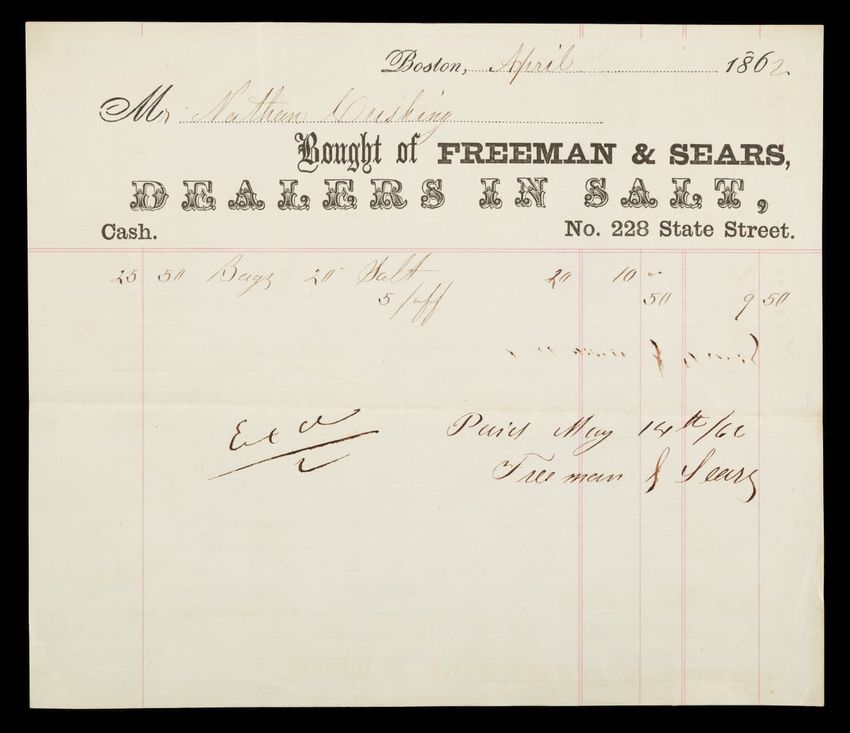 Boston, April 1862
Mr Nathan Cushing
Bought of FREEMAN & SEARS,
DEALERS IN SALT,
Cash. No. 228 State Street.
25 50 Bags 20 Salt 20 10 "
5/off 50 9 50
Paid May 14th/62
Freeman & Sears